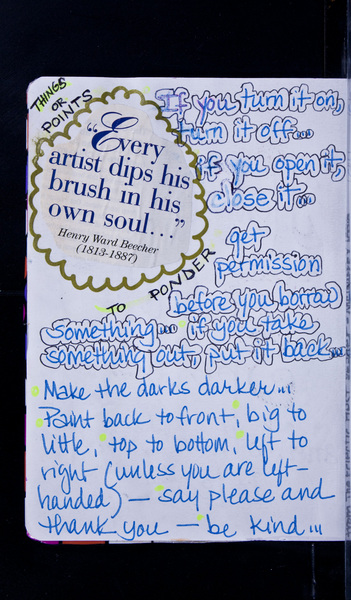 THINGS
OR
POINTS
TO PONDER
"Every
artist dips his
brush in his
own soul..."
Henry Ward Beecher
(1813-1887)
If you turn it on,
turn it off...
if you open it,
close it...
get
permission
before you borrow
something... if you take
something out, put it back...
Make the darks darker...
Paint back to front, big to
little, top to bottom, left to
right (unless you are left-
handed) — say please and
thank you — be kind...